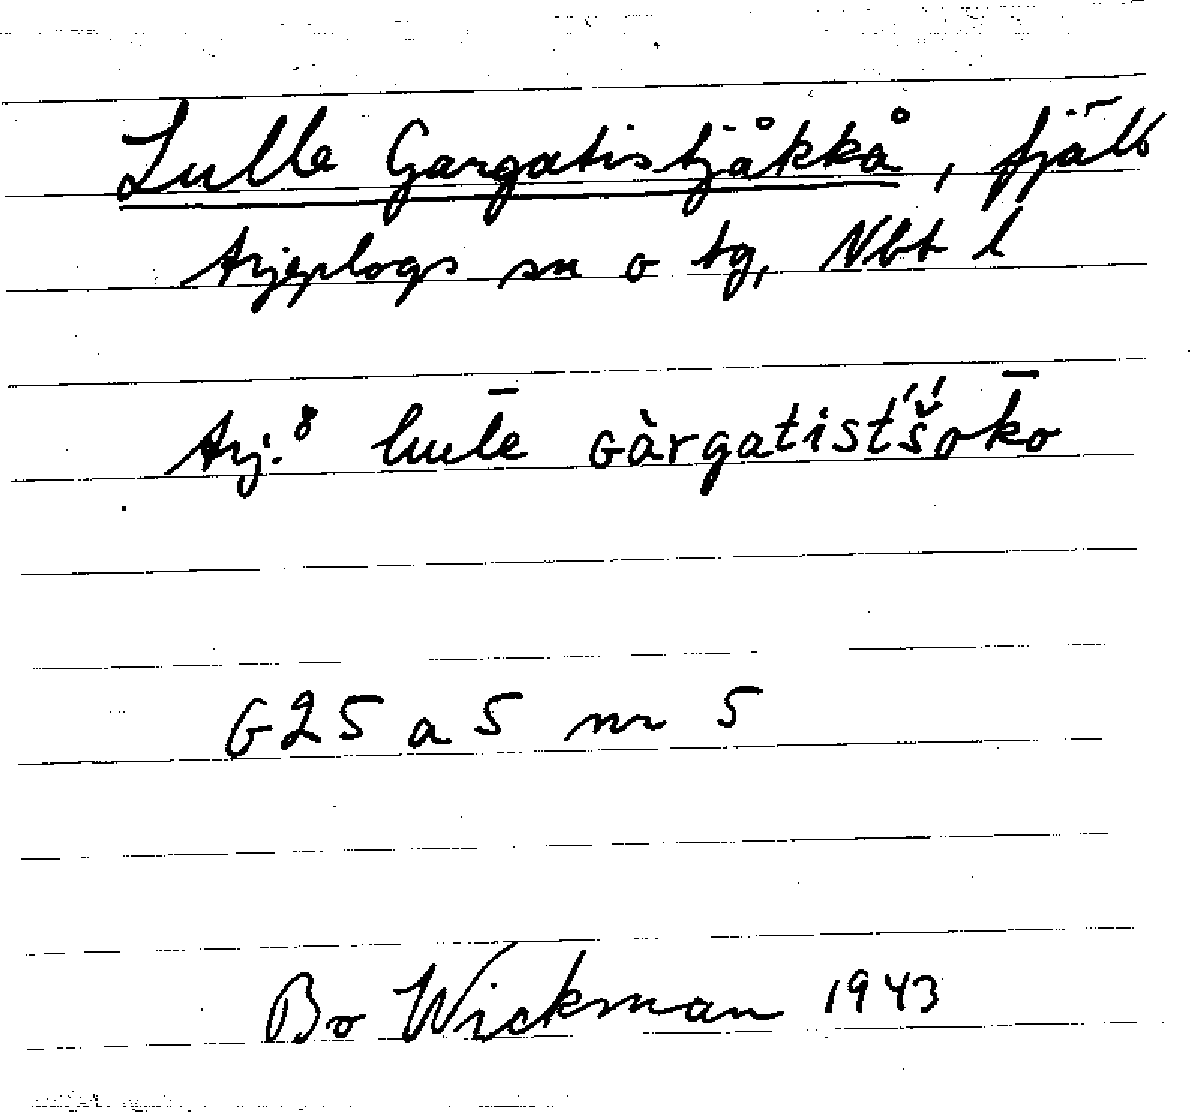 Lulle Gargatistjåkkå, fjäll
Arjeplogs sn o tg, Nbt l
Arj.8 lu̅le ɢàrgatist'š'ok̅o
G25 a 5 nr 5
Bo Wickman 1943